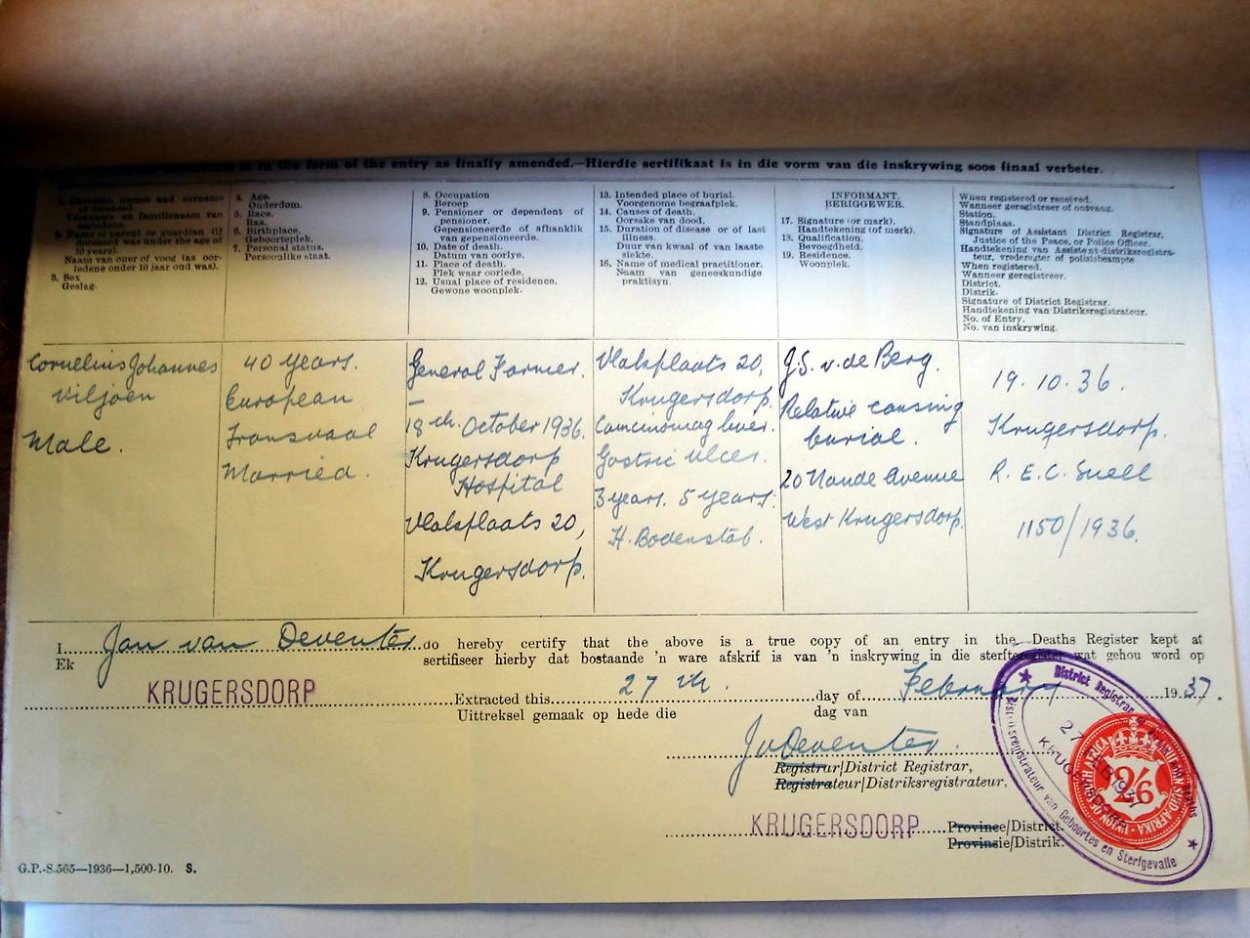 is in the form of the entry as finally amended.—Hierdie sertifikaat is in die vorm van die inskrywing soos finaal verbeter.
1. Christian names and surname
of deceased.
Voorname en familienaam van
oorledene.
2. Name of parent or guardian (if
deceased was under the age of
10 years).
Naam van ouer of voog (as oor-
ledene onder 10 jaar oud was).
3. Sex
Geslag.
4. Age.
Ouderdom.
5. Race.
Ras.
6. Birthplace.
Geboorteplek.
7. Personal status.
Persoonlike staat.
8. Occupation
Beroep
9. Pensioner or dependent of
pensioner.
Gepensioneerde of afhanklik
van gepensioneerde.
10. Date of death.
Datum van oorlye.
11. Place of death.
Plek waar oorlede.
12. Usual place of residence.
Gewone woonplek.
13. Intended place of burial.
Voorgenome begraafplek.
14. Causes of death.
Oorsake van dood.
15. Duration of disease or of last
illness.
Duur van kwaal of van laaste
siekte.
16. Name of medical practitioner.
Naam van geneeskundige
praktisyn.
INFORMANT.
BERIGGEWER.
17. Signature (or mark).
Handtekening (of merk).
18. Qualification.
Bevoegdheid.
19. Residence.
Woonplek.
When registered or received.
Wanneer geregistreer of ontvang.
Station.
Standplaas.
Signature of Assistant District Registrar,
Justice of the Peace, or Police Officer.
Handtekening van Assistent-distriksregistra-
teur, vrederegter of polisiebeampte
When registered.
Wanneer geregistreer.
District.
Distrik.
Signature of District Registrar.
Handtekening van Distriksregistrateur.
No. of Entry.
No. van inskrywing.
Cornelius Johannes
Viljoen
Male.
40 years.
European
Transvaal
Married.
General Farmer.
—
18th. October 1936.
Krugersdorp
Hospital
Vlakplaats 20,
Krugersdorp.
Vlakplaats 20,
Krugersdorp.
Gastric ulcer.
3 years. 5 years.
H. Bodenstab.
J.S. v. de Berg.
Relative causing
burial.
20 Naude Avenue
West Krugersdorp.
19.10.36.
Krugersdorp.
R. E. C. Snell
1150/1936.
I Jan van Deventer do hereby certify that the above is a true copy of an entry in the Deaths Register kept at
Ek sertifiseer hierby dat bostaande 'n ware afskrif is van 'n inskrywing in die sterfteregister wat gehou word op
KRUGERSDORP Extracted this 27th. day of February 1937.
Uittreksel gemaak op hede die dag van
JvDeventer.
Registrar/District Registrar,
Registrateur/Distriksregistrateur.
KRUGERSDORP Province/District.
Provinsie/Distrik.
District Registrar
27 FEB 1937
KRUGERSDORP
Distriksregistrateur van Geboortes en Sterfgevalle
UNION OF SOUTH AFRICA
2/6
G.P.-S.565—1936—1,500-10. S.